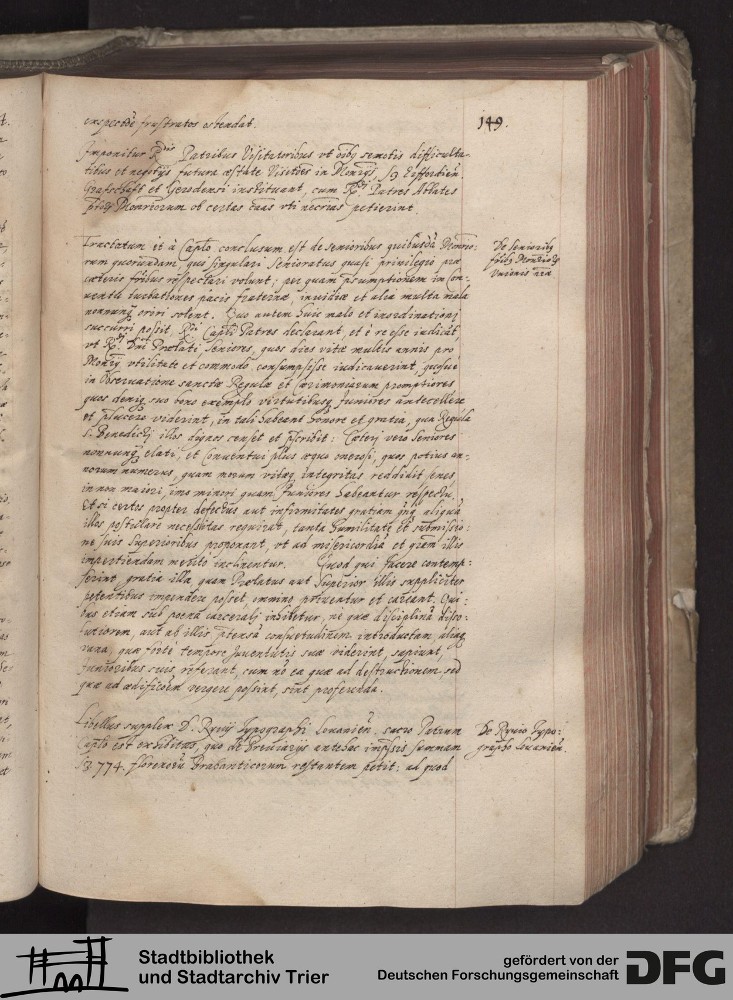 149.
expectõe frustratos ostendat.
Imponitur R.dis Patribus Visitatoribus vt oĩbq semotis difficulta-
tibus et negotijs futura æstate Visitões in Monrijs,
Grafschaft et Gerodensi instituant, cum Patres Abbates
Monriorum ob certas cãas vti necrias petierint.
Tractatum et à Caplo conclusum est de senioribus quibusdã Monrio:
rum quorundam, qui singulari senioratus quasi priuilegio præ
cæteris respectari volunt; per quam præsumptionem in Con-
uentu turbationes pacis fraternæ, inuidiæ et alia multa mala
nonnunq oriri solent. Quo autem huic malo et inordinationj
succurri possit, Capli Patres declarant, et è re esse iudicãt,
vt Dni Prælati seniores, quos dies vitæ multis annis pro
Monrij vtilitate et commodo consumpsisse iudicauerint, quosue
in obseruatione sanctæ Regulæ et Cærimoniarum promptiores
quos deniq suo bono exemplo virtutibusq Juniores antecellere
et viderint, in tali habeant honore et gratia, qua Regula
S. Benedictj illos dignos censet et pscribit: Cæterj vero seniores
nonnunq elati, et Conuentui plus æquo onerosi, quos potius an-
norum numerus, quam morum vitæq integritas reddidit senes
in non maiori, imo minori quam Juniores habeantur respectu.
Et si certos propter defectus aut infirmitates gratiam aliquã
illos postulare necessitas requirat, tanta humilitate et submissio-
ne suis Superioribus proponant, vt ad misericordiã et grãm illis
impertiendam merito inclinentur. Quod qui facere contemp:
serint, gratia illa, quam Prælatus aut Superior illis suppliciter
petentibus impendere posset, immino priuentur et careant. Qui-
bus etiam sub poena carceralj inhibetur, ne quæ disciplinã disso-
lutiorem, aut ab illis prætensã consuetudinem introductam, aliaq
vana, quæ fortè tempore Juuentutis suæ viderint, sapiunt,
Junioribus suis referant, cum nõ ea quæ ad destructionem, sed
quæ ad ædificõem vergere possint, sint proferenda.
De Senioribq
Monriorq
Vnionis
Libellus supplex D. Ryuij Typographi Louanien. sacro Patrum
Caplo est exhibitus, quo de Breuiarijs antehac impssis summam
774. florenorũ Brabanticorum restantem petit: ad quod
De Ryuio Typo:
grapho Louanien.
Stadtbibliothek
und Stadtarchiv Trier
gefördert von der
Deutschen Forschungsgemeinschaft
DFG